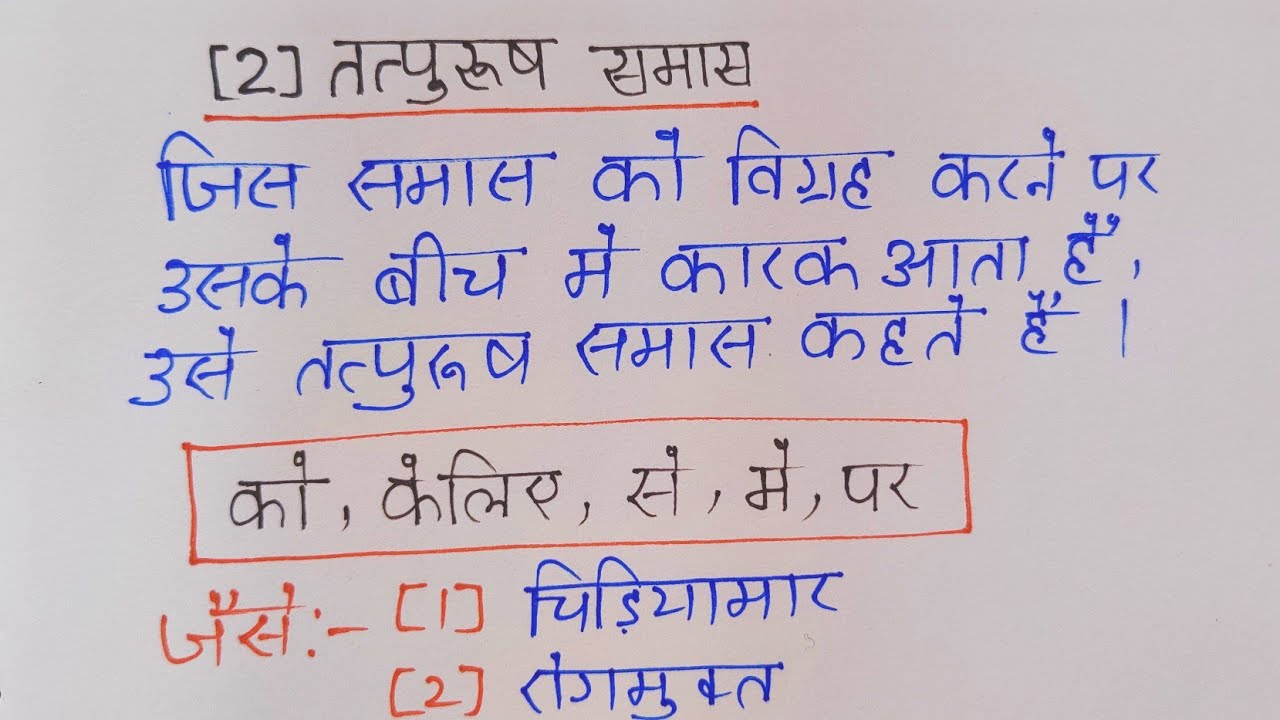 [2] तत्पुरूष समास
जिस समास को विग्रह करने पर
उसके बीच में कारक आता हैं,
उसे तत्पुरूष समास कहते हैं।
को, केलिए, से, में, पर
जैसे:- [1] चिड़ियामार
[2] रोगमुक्त